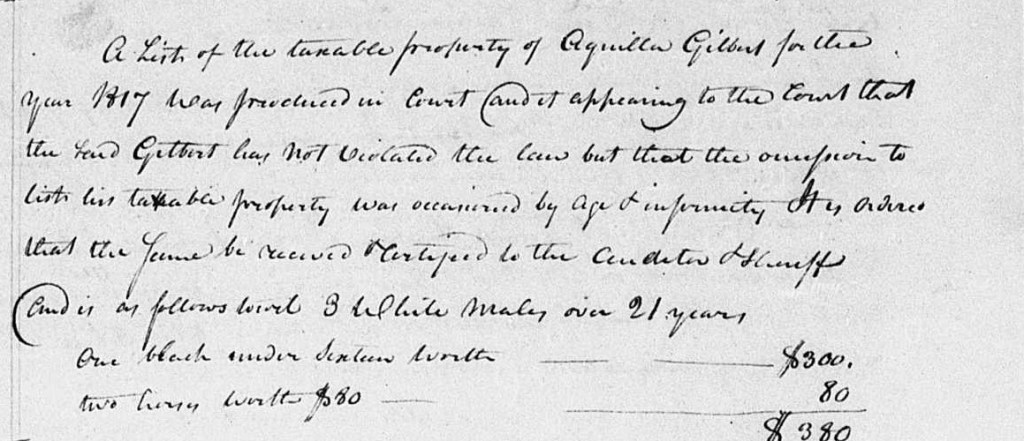 A List of the taxable property of Aquilla Gilbert for the
year 1817 was produced in Court and it appearing to the Court that
the said Gilbert has not violated the law but that the omission to
list his taxable property was occasioned by age & infirmity It is ordered
that the same be received & Certified to the Auditor & Sheriff
and is as follows towit 3 White Males over 21 years
One black under Sixteen worth $300.
two horses worth $80 80
$380